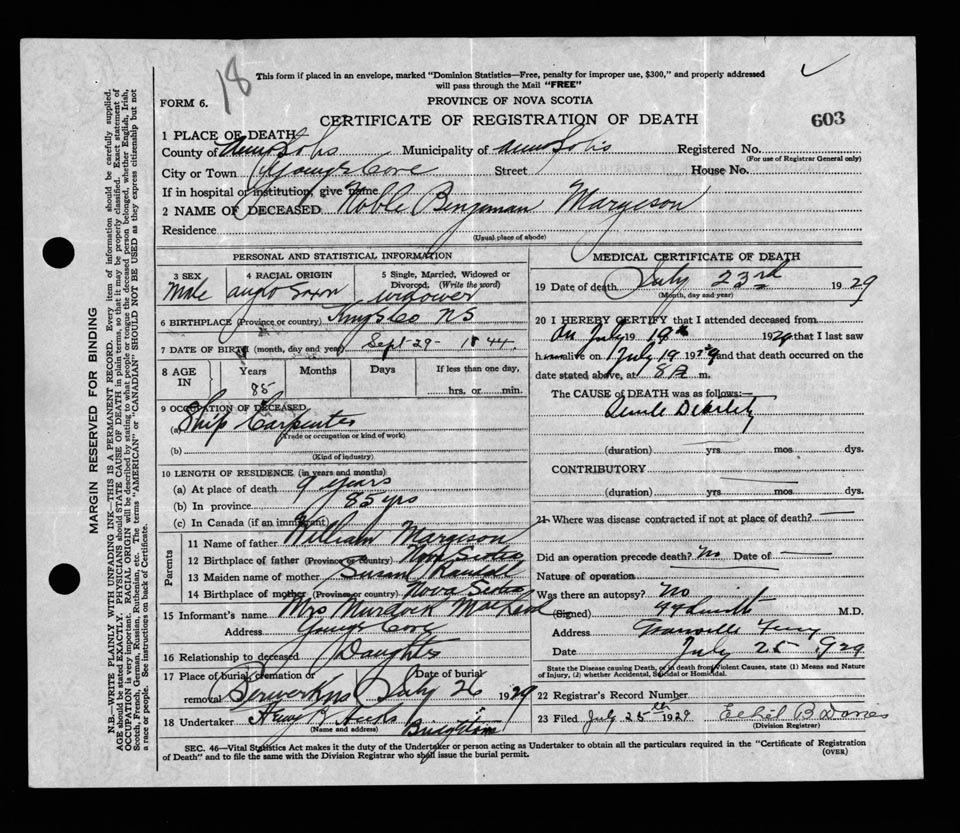 18
This form if placed in an envelope, marked "Dominion Statistics—Free, penalty for improper use, $300," and properly addressed
will pass through the Mail "FREE"
FORM 6.
PROVINCE OF NOVA SCOTIA
CERTIFICATE OF REGISTRATION OF DEATH
603
1 PLACE OF DEATH
County of Annapolis Municipality of Annapolis Registered No.
(For use of Registrar General only)
City or Town Youngs Cove Street House No.
If in hospital or institution, give name
2 NAME OF DECEASED Noble Benjaman Margeson
Residence
(Usual place of abode)
PERSONAL AND STATISTICAL INFORMATION
3 SEX Male
4 RACIAL ORIGIN Anglo Saxon
5 Single, Married, Widowed or Divorced. (Write the word) widower
6 BIRTHPLACE (Province or country) Kings Co NS
7 DATE OF BIRTH (month, day and year) Sept-29- 1844.
8 AGE IN Years 85 Months Days If less than one day, hrs. or min.
9 OCCUPATION OF DECEASED
(a) Ship Carpenter
(Trade or occupation or kind of work)
(b)
(Kind of industry)
10 LENGTH OF RESIDENCE (in years and months)
(a) At place of death 9 years
(b) In province 85 yrs
(c) In Canada (if an immigrant)
Parents
11 Name of father William Margeson
12 Birthplace of father (Province or country) Nova Scotia
13 Maiden name of mother Susan Randall
14 Birthplace of mother (Province or country) Nova Scotia
15 Informant's name Mrs Murdock
Address Youngs Cove
16 Relationship to deceased Daughter
17 Place of burial, cremation or removal Date of July 26 1929
18 Undertaker
(Name and address)
MEDICAL CERTIFICATE OF DEATH
19 Date of death July 23rd 1929
(Month, day and year)
20 I HEREBY CERTIFY that I attended deceased from
on July 19th 1929 that I last saw
h alive on July 19 1929 and that death occurred on
date stated above, at 8 A m.
The CAUSE OF DEATH was as follows:—
Senile Debility
(duration) yrs mos dys.
CONTRIBUTORY
(duration) yrs. mos. dys.
21 Where was disease contracted if not at place of death?
Did an operation precede death? No Date of
Nature of operation
Was there an autopsy? No
(Signed) M.D.
Address Granville Ferry
Date July 25 1929
State the Disease causing Death, or in death from Violent Causes, state (1) Means and Nature
of Injury, (2) whether Accidental, Suicidal or Homicidal.
22 Registrar's Record Number
23 Filed July 25th 1929 Ethel B Davies
(Division Registrar)
SEC. 46—Vital Statistics Act makes it the duty of the Undertaker or person acting as Undertaker to obtain all the particulars required in the "Certificate of Registration
of Death" and to file the same with the Division Registrar who shall issue the burial permit.
(OVER)
MARGIN RESERVED FOR BINDING
N.B.—WRITE PLAINLY, WITH UNFADING INK—THIS IS A PERMANENT RECORD. Every item of information should be carefully supplied.
AGE should be stated EXACTLY. PHYSICIANS should STATE CAUSE OF DEATH in plain terms, so that it may be properly classified. Exact statement of
OCCUPATION is very important. RACIAL ORIGIN will be described by stating to what people or tongue the deceased person belonged, whether English, Irish,
Scotch, French, German, Russian, Ruthenian, etc. The terms "AMERICAN" or "CANADIAN" SHOULD NOT BE USED as they express citizenship but not
a race or people. See instructions on back of Certificate.